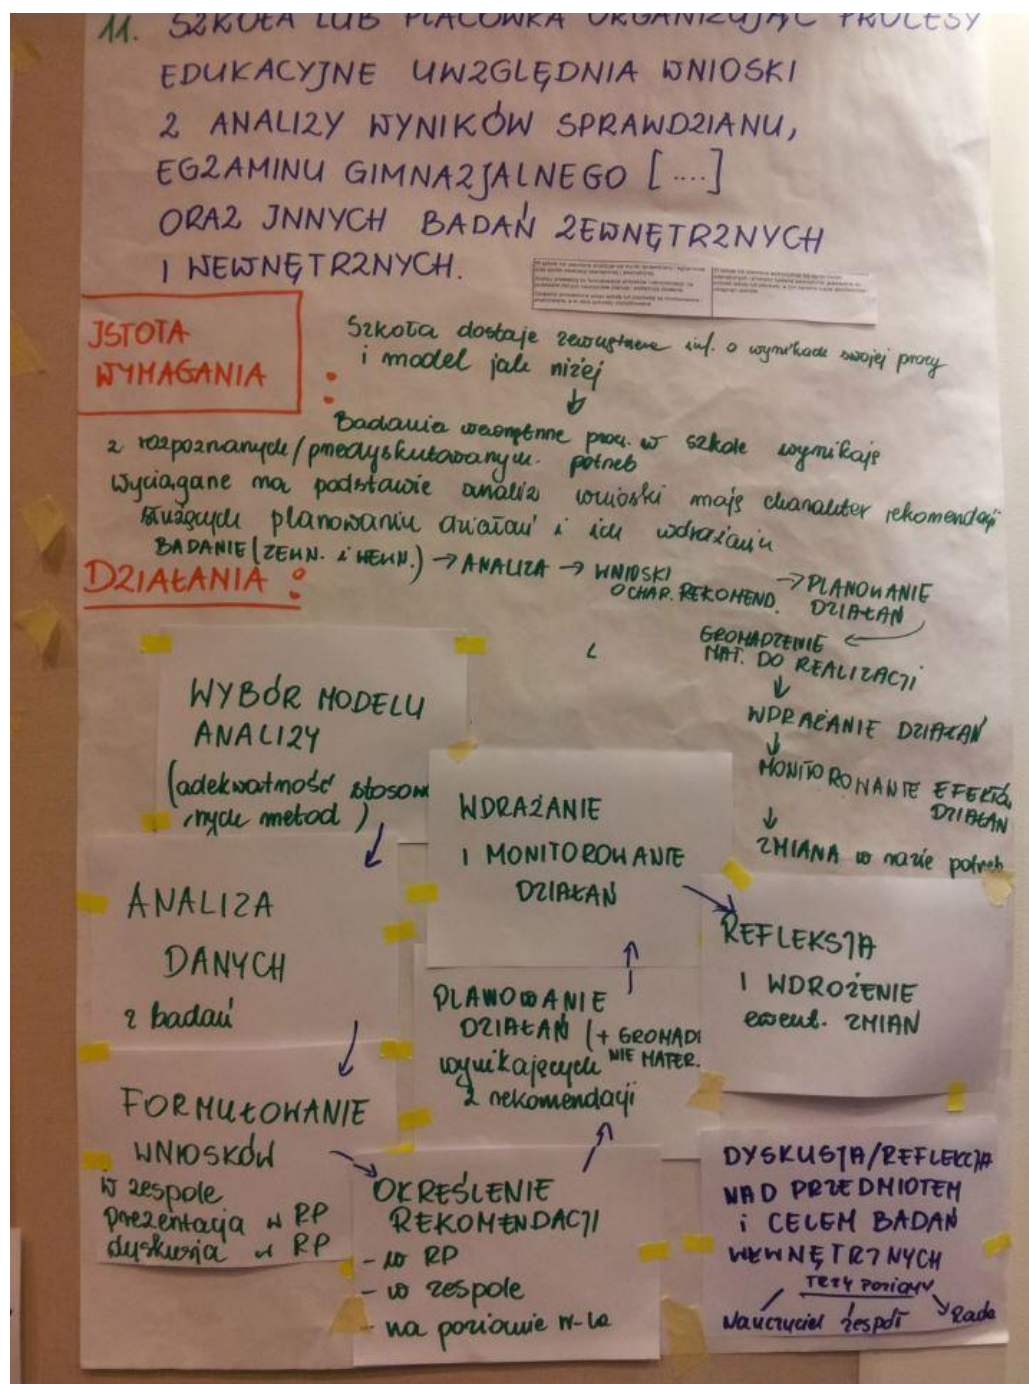 11. SZKOŁA LUB PLACÓWKA ORGANIZUJĄC PROCESY
EDUKACYJNE UWZGLĘDNIA WNIOSKI
Z ANALIZY WYNIKÓW SPRAWDZIANU,
EGZAMINU GIMNAZJALNEGO [....]
ORAZ INNYCH BADAŃ ZEWNĘTRZNYCH
I WEWNĘTRZNYCH.
ISTOTA
WYMAGANIA :
Szkoła dostaje zewnętrzne inf. o wynikach swojej pracy
i model jak niżej
↓
Badania wewnętrzne prow. w szkole wynikają
z rozpoznanych/przedyskutowanych potrzeb
Wyciągane na podstawie analiz wnioski mają charakter rekomendacji
służących planowaniu działań i ich wdrażaniu
BADANIE (ZEWN. i WEWN.) → ANALIZA → WNIOSKI
O CHAR. REKOMEND. → PLANOWANIE
DZIAŁAŃ
DZIAŁANIA :
GROMADZENIE
MAT. DO REALIZACJI
↓
WDRAŻANIE DZIAŁAŃ
↓
MONITOROWANIE EFEKTÓ
DZIAŁAŃ
↓
ZMIANA w razie potrzeb
WYBÓR MODELU
ANALIZY
(adekwatność stosow
nych metod)
ANALIZA
DANYCH
z badań
FORMUŁOWANIE
WNIOSKÓW
w zespole
prezentacja w RP
dyskusja w RP
OKREŚLENIE
REKOMENDACJI
- w RP
- w zespole
- na poziomie n-la
PLANOWANIE
DZIAŁAŃ (+ GROMADZ
wynikających NIE MATER.
z rekomendacji
WDRAŻANIE
I MONITOROWANIE
DZIAŁAŃ
REFLEKSJA
I WDROŻENIE
ewent. ZMIAN
DYSKUSJA/REFLEKCJA
NAD PRZEDMIOTEM
i CELEM BADAŃ
WEWNĘTRZNYCH
TRZY POZIOMY
Nauczyciel zespół Rada